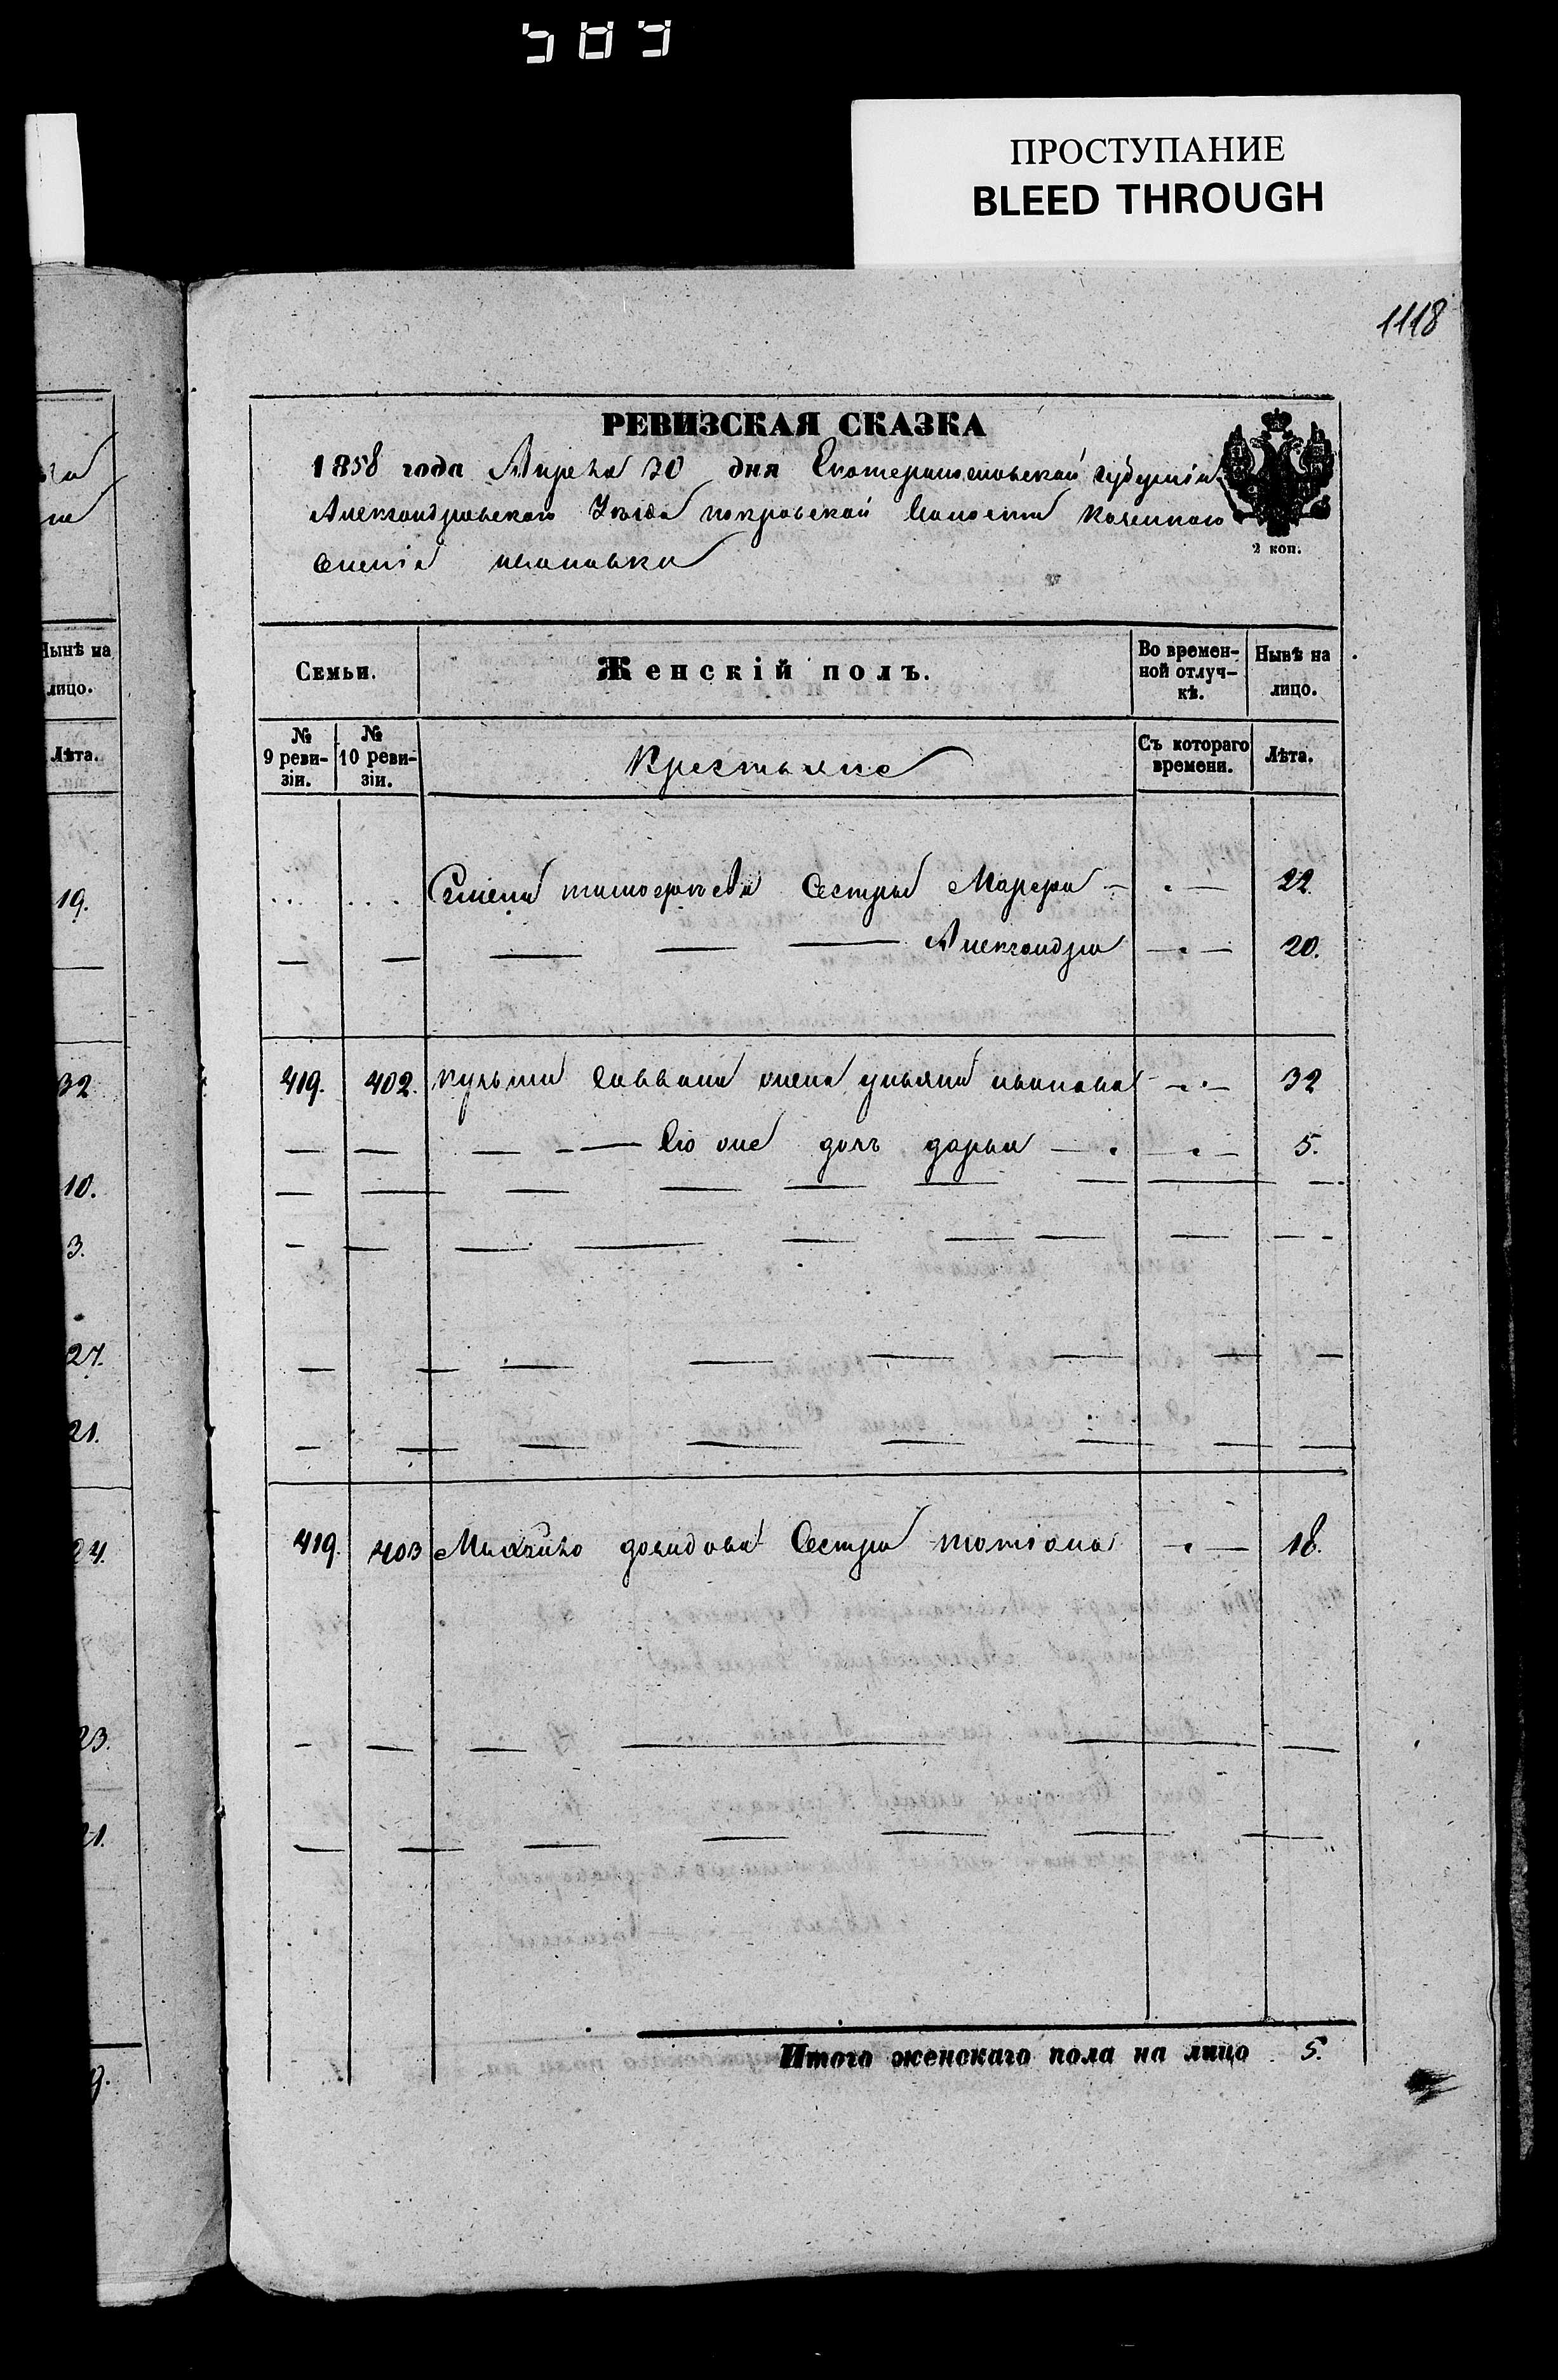 589
ПРОСТУПАНИЕ
BLEED THROUGH
1118
РЕВИЗСКАЯ СКАЗКА
1858 года Апреля 20 дня Екатеринославской губерніи
Александровского Уѣзда покровской Волости казенного
Селенія ивановки
2 коп.
Семьи.
Женскій полъ.
Во времен-
ной отлуч-
кѣ.
Нынѣ на
лицо.
№
9 реви-
зіи.
№
10 реви-
зіи.
Крестьяне
Съ котораго
времени.
Лѣта.
Семена тимофеева Сестры Марфа 22
Александра 20.
419. 402. кузьмы Саввина жена ульяна иванова 32
Его же дочь дарья 5.
419. 403 Михайло давидова Сестра татіана 18.
Итого женскаго пола на лицо 5.
Нынѣ на
лицо.
Лѣта.
19.
32
10.
3.
27.
21.
24.
23.
21.
9.